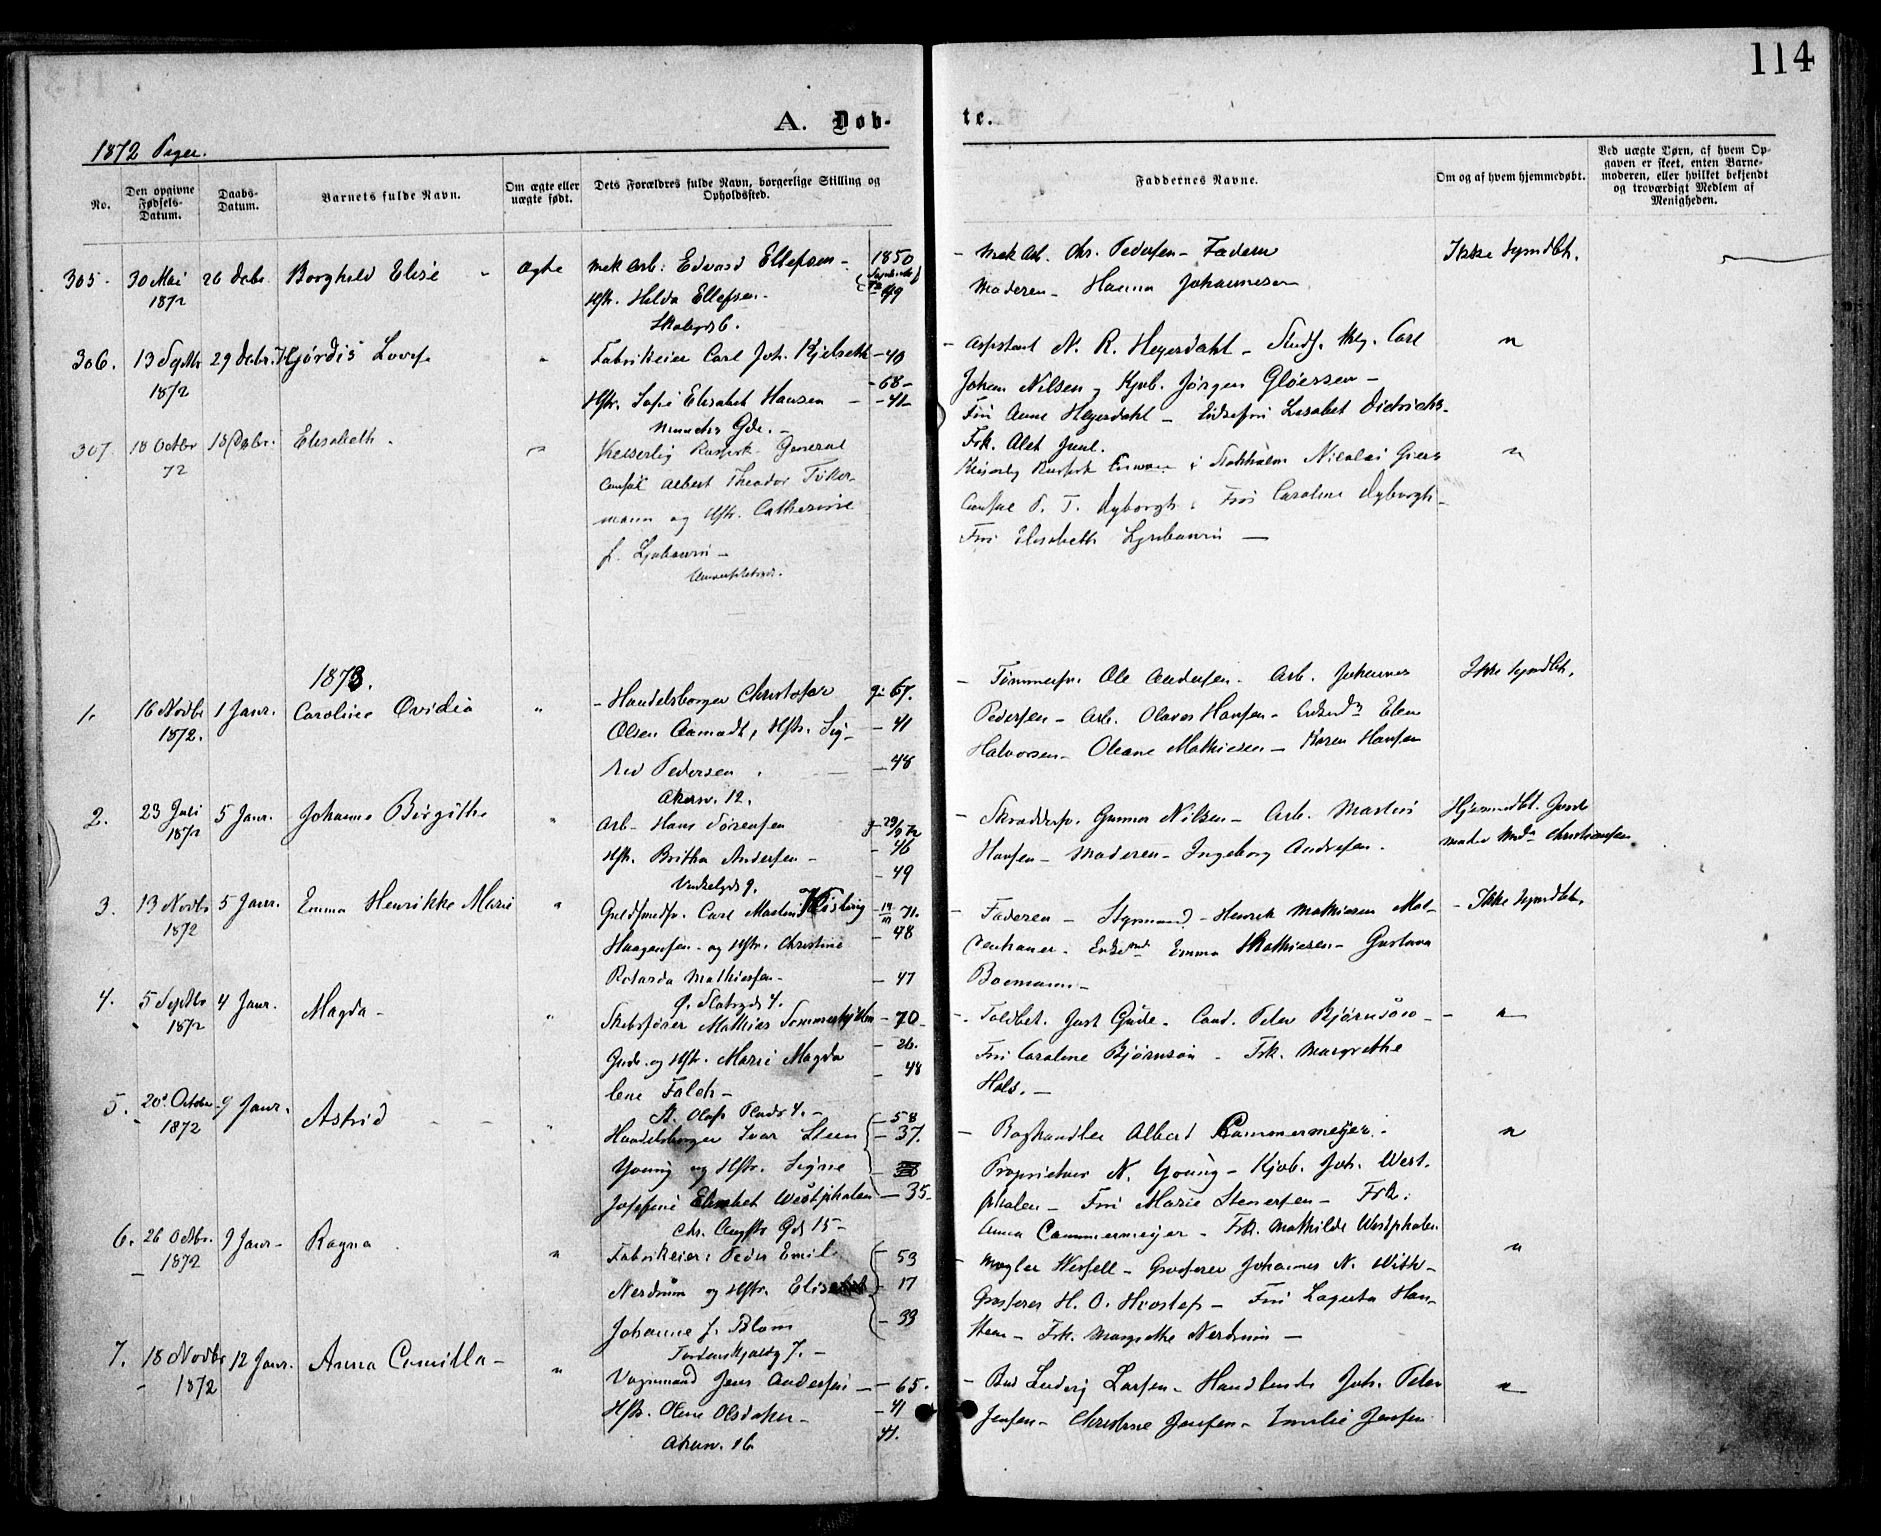 114
A. Døb-
te.
1872 Piger.
No.
Den opgivne Fødsels-Datum.
Daabs-Datum.
Barnets fulde Navn.
Om ægte eller uægte født.
Dets Forældres fulde Navn, borgerlige Stilling og Opholdssted.
Faddernes Navne.
Om og af hvem hjemmedøbt.
Ved uægte Børn, af hvem Op-
gaven er skeet, enten Barne-
moderen, eller hvilket bekjendt
og troværdigt Medlem af
Menigheden.
305. 30 Mai 1872 26 Debr. Borghild Elise " Ægte
Mek Arb: Edvard Ellefsen - 1850
Hstr. Hilda Ellefsen - 49
- Mek Arb. Chr. Pedersen - Faderen
Moderen - Hanna Johannesen
Ikke hjmdbt.
306. 13 Septbr 1872 29 Debr. Hjørdis Lovise "
Fabrikeier Carl Joh. Kjelseth - 40
- 68 -
Hstr. Sofie Elisabet Hansen - - 41 -
- Assistent N. R. Heyerdahl - Carl
Johan Nilsen og Kjøb. Jørgen Gløersen -
Fru Anne Heyerdahl - Enkefru Lisabet Dietrichs -
Frk. Alet Juul.
"
307. 18 Octbr 72 15 Debr. Elisabeth - "
Keiserlig Russisk General
Consul Albert Theodor Tøker-
mann og Hstr. Catherine
f. Ljubavin -
Universitetsgd.
Keiserlig Russisk i Stokholm Nicolai Giers
Consul P. T. Nyborgh Fru Caroline Nyborgh -
Fru Elisabeth Ljubavin -
"
1873.
1. 16 Novbr 1872. 1 Janr. Caroline Ovidia "
- Handelsborger Christofer g: 67.
Olsen Aamodt, Hstr. Sig- - 41
rid Pedersen - 48
Akersv. 12.
- Tømmersv. Ole Andersen. Arb. Johannes
Pedersen - Arb. Olaves Hansen - Enkemdm Elen
Halvorsen - Oleane Mathiesen - Karen Hansen
Ikke hjmdbt.
2. 23 Juli 1872 5 Janr. Johanne Birgitte "
Arb - Hans Sørensen
Hstr. Britha Andersen - - 46
- 49
- Skrædersv. Gunnar Nilsen - Arb. Martin
Hansen - Moderen - Ingeborg Andersen.
Hjemmedbt. Jord-
moder Mdm Christiansen
3. 13 Novbr 1872 5 Janr. Emma Henrikke Marie "
Guldsmedsv. Carl Martin Kisting 71.
Haagensen - og Hstr. Christine - 48
Rotarda Mathiessen - - 47
Ø. Slotsgd 4.
- Faderen - Styrmand - Henrik Mathiesen
Enkemd Emma Mathiesen - Gustava
Boemann -
- Ikke hjmdbt.
4. 5 Septbr 1872 4 Janr. Magda - "
Skibsfører Mathias Sommerhjelm - 70 -
Gude og Hstr. Marie Magda - 26.
lene Falch - - 48
St. Olafs Plads 4. -
- Toldbet. Just Gude - Cand. Peter Bjørnson -
Fru Caroline Bjørnson - Frk. Margrethe
Hals. -
- " -
5. 20. October 1872 9 Janr. Astrid - - "
- 58
Handelsborger Ivar Steen - 37.
Young og Hstr. Signe
Josefine Elisabet Westphalen - 35 -
Chr. Augsts Gd 15 -
- Boghandler Albert Cammermeyer. -
Proprietær N. Young - Kjøb. Joh. West.
phalen - Fru Marie Stenersen - Frk.
Anna Cammermeyer - Frk. Mathilde Westphalen
"
6. 26 Octbr. 1872 9 Janr - Ragna. "
Fabrikeier Peder Emil - 53
Nerdrum og Hstr. Elisabet - 17
Johanne f. Blom - 33
Tordenskjoldsg 7. -
- Mægler Hesfell - Grosserer Johannes N. With -
Grosserer H. O. Hvostef - Fru Lagerta Han-
steen - Frk. Margrethe Nerdrum -
"
7. 18 Novbr 1872 12 Janr. Anna Camilla - "
Vognmand Jens Andersen - - 65.
Hstr. Oline Olsdatter - - 41
Akersv. 16. 41.
- Bud Ludvig Larsen - Handlende Joh. Peter
Jensen - Christine Jensen - Emilie Jensen
"